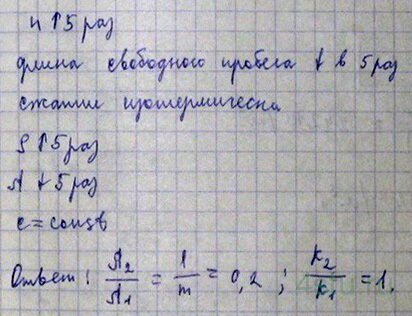 n ↑ 5 раз
длина свободного пробега ↓ в 5 раз
сжатие изотермически
ρ ↑ 5 раз
λ ↓ 5 раз
c = const
Ответ: λ₂/λ₁ = 1/m = 0,2 ; k₂/k₁ = 1.